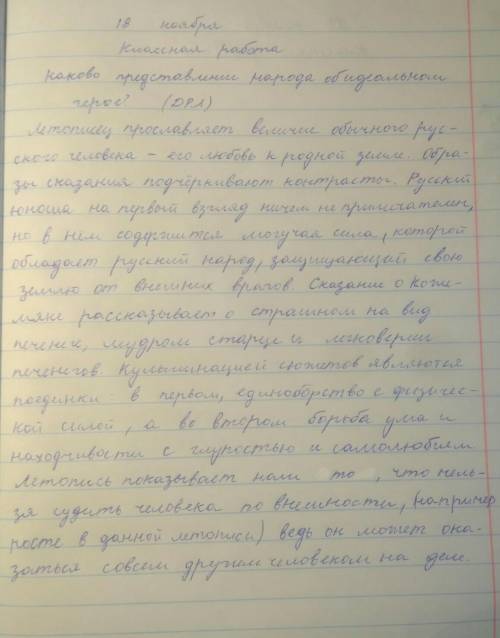 18 ноября
Классная работа
Каково представление народа об идеальном
герое? (ДРЛ)
Летописец прославляет величие обычного рус-
ского человека - его любовь к родной земле. Обра-
зы сказания подчёркивают контрасты. Русский
юноша на первый взгляд ничем не примечателен,
но в нем содержится могучая сила, которой
обладает русский народ, защищающий свою
землю от внешних врагов. Сказание о Коже-
мяке рассказывает о страшном на вид
печенеге, мудром старце и легковерии
печенегов. Кульминацией сюжетов являются
поединки: в первом, единоборство с физичес-
кой силой, а во втором борьба ума и
находчивости с глупостью и самолюбием
Летопись показывает нам то, что нель-
зя судить человека по внешности, (например
росте в данной летописи) ведь он может ока-
заться совсем другим человеком на деле.